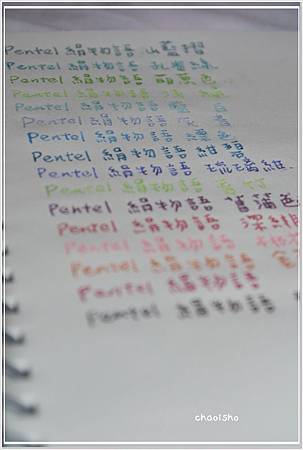 Pentel 絹物語 山藍摺
Pentel 絹物語
Pentel 絹物語 萌葉色
Pentel 絹物語
Pentel 絹物語 藍白
Pentel 絹物語 灰青
Pentel 絹物語 縹色
Pentel 絹物語 紺碧
Pentel 絹物語 琉璃紺
Pentel 絹物語 若竹
Pentel 絹物語 菖蒲色
Pentel 絹物語 深緋
Pentel 絹物語
Pentel 絹物語
Pentel 絹物語
Pentel 絹物語
chaoisho